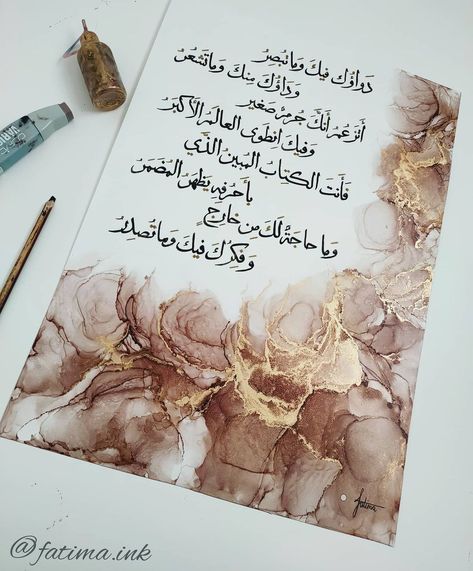 دَوَاؤُكَ فِيكَ وَمَا تُبْصِرُ
وَدَاؤُكَ مِنْكَ وَمَا تَشْعُرُ
أَتَزْعُمُ أَنَّكَ جُرْمٌ صَغِير
وَفِيكَ انْطَوَى العَالَمُ الأَكْبَرُ
فَأَنْتَ الكِتَابُ المُبِينُ الَّذِي
بِأَحْرُفِهِ يَظْهَرُ المُضْمَرُ
وَمَا حَاجَةٌ لَكَ مِن خَارِجٍ
وَفِكْرُكَ فِيكَ وَمَا تُصْدِرُ
fatima
@fatima.ink